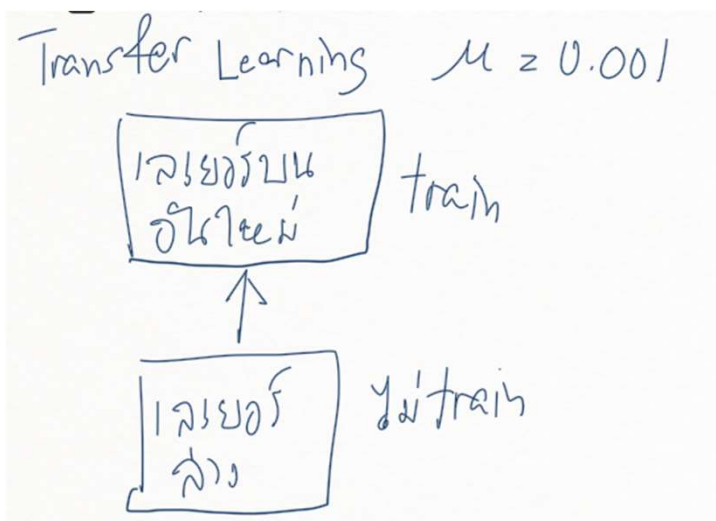 Transfer Learning μ = 0.001
เลเยอร์บน
อันใหม่
train
เลเยอร์
ล่าง
ไม่train